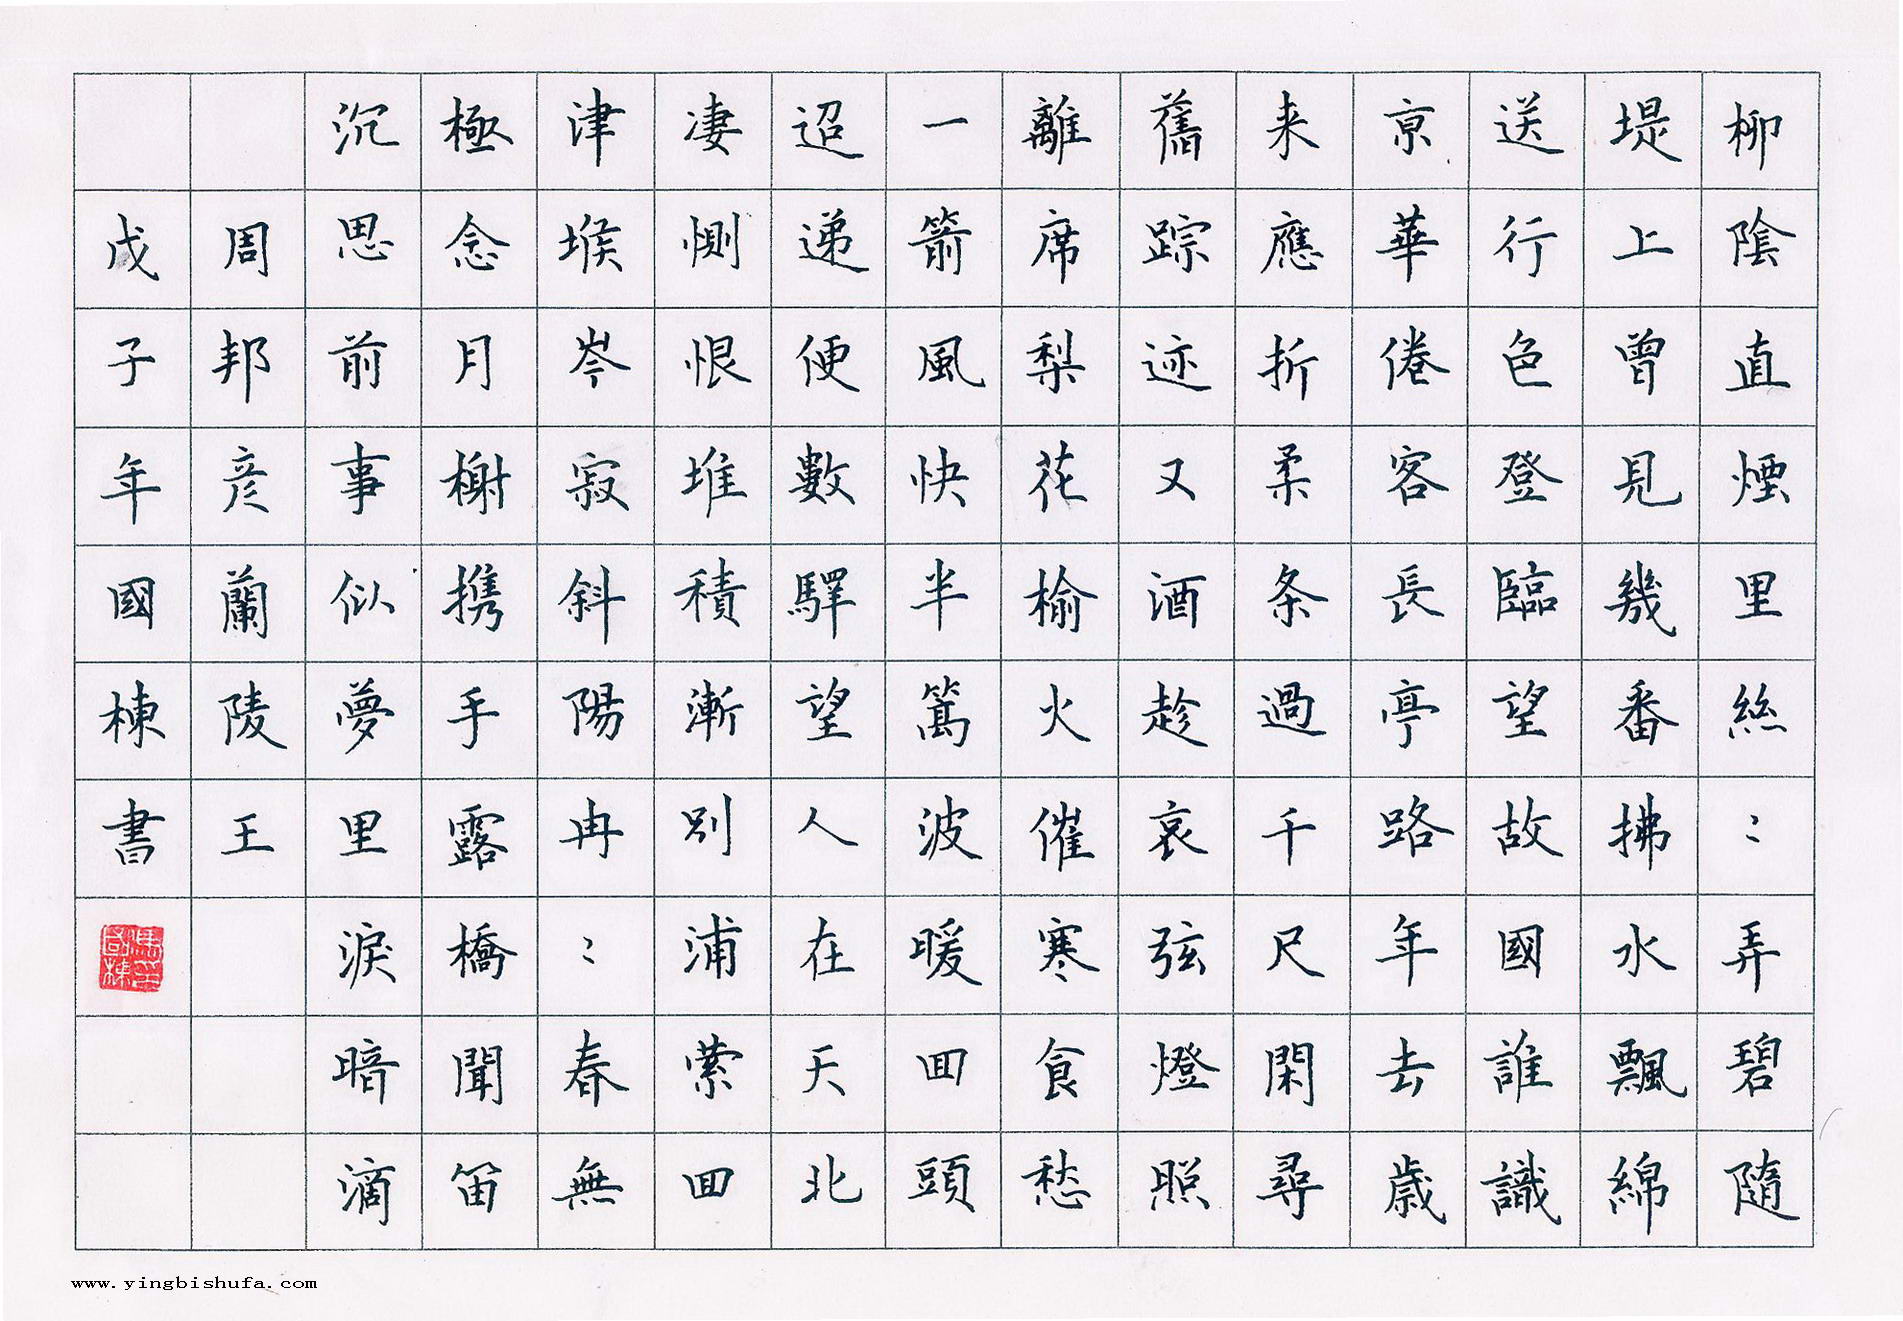 柳陰直煙里絲：弄碧隨
堤上曾見幾番拂水飄綿
送行色登臨望故國誰識
京華倦客長亭路年去歲
来應折柔条過千尺閑尋
舊踪迹又酒趁哀弦燈照
離席梨花榆火催寒食愁
一箭風快半篙波暖回頭
迢递便數驛望人在天北
凄惻恨堆積漸別浦縈回
津堠岑寂斜陽冉：春無
極念月榭携手露橋聞笛
沉思前事似夢里淚暗滴
周邦彦蘭陵王
戊子年國棟書
www.yingbishufa.com